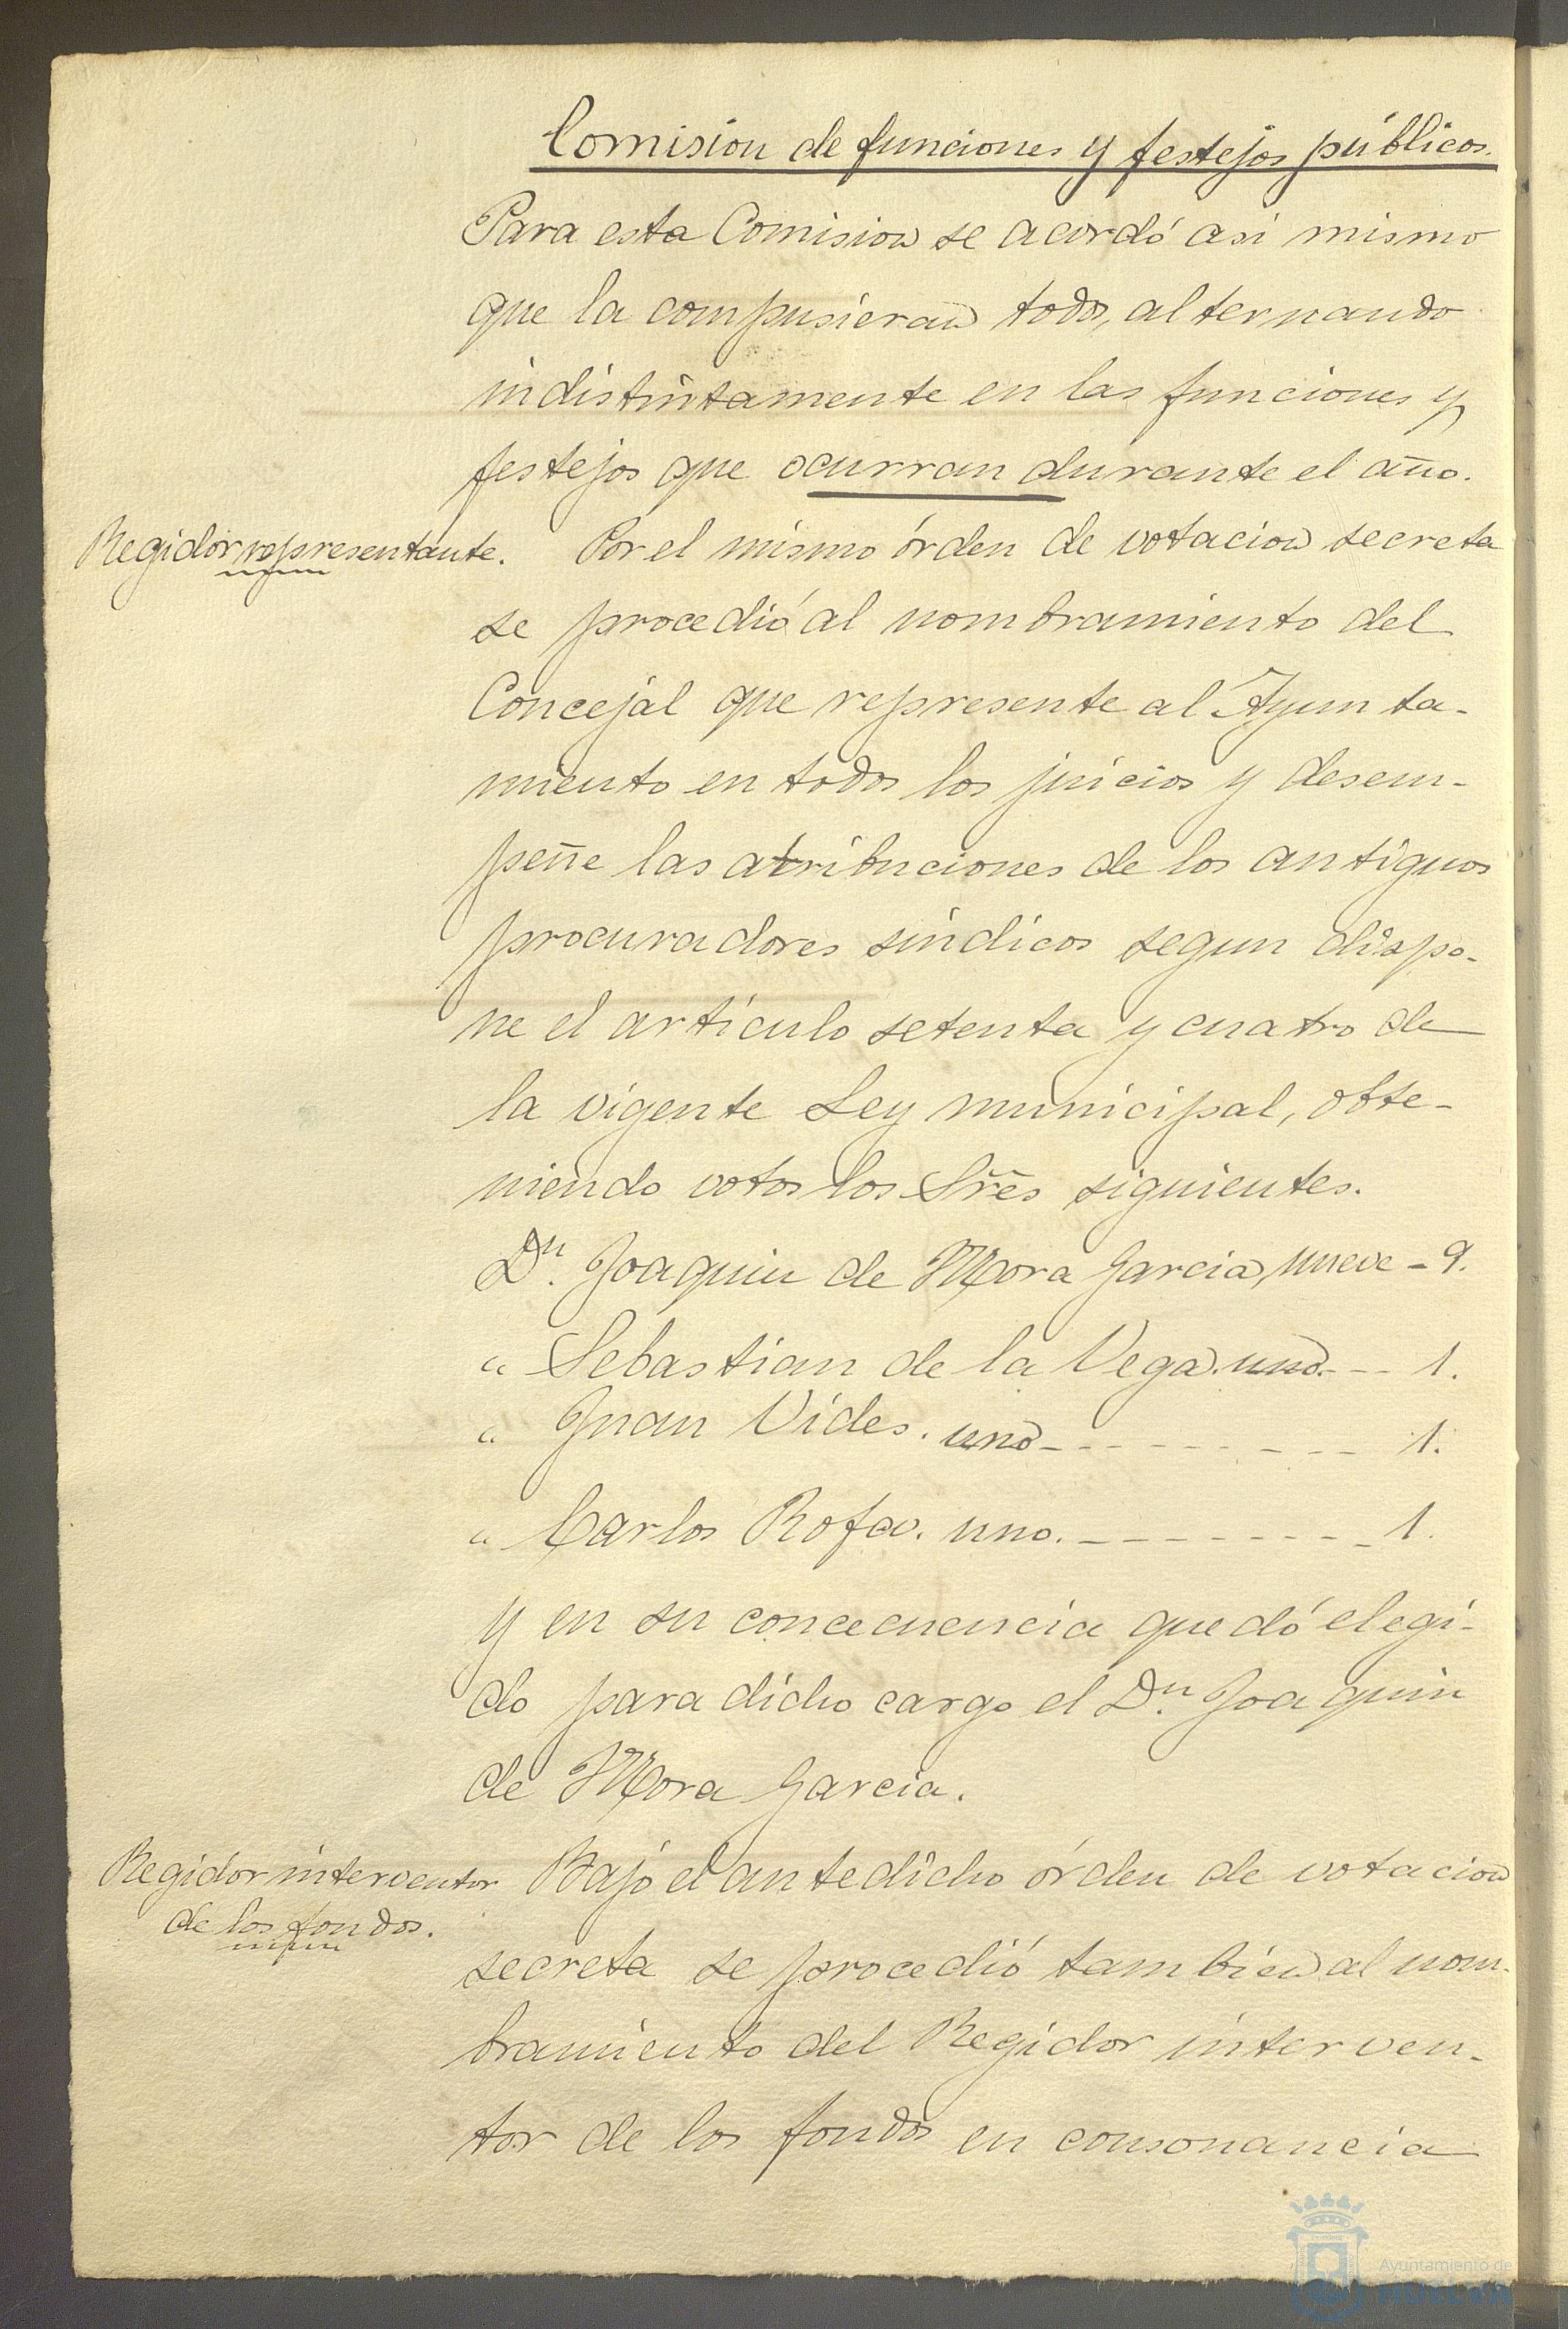 Comision de funciones y festejos públicos.
Para esta Comision se acordó asi mismo
que la compusieran todos, alternando
indistintamente en las funciones y
festejos que ocurran durante el año.
Regidor representante.
Por el mismo órden de votacion secreta
se procedió al nombramiento del
Concejal que represente al Ayunta-
miento en todos los juicios y desem-
peñe las atribuciones de los antiguos
procuradores síndicos segun dispo-
ne el artículo setenta y cuatro de
la vigente Ley municipal, obte-
niendo votos los Srẽs siguientes.
Dⁿ. Joaquin de Mora Garcia, nueve - 9.
" Sebastian de la Vega. uno. - - 1.
" Juan Vides. uno - - - - - - - - - 1.
" Carlos Rofa. uno. - - - - - - - - 1.
y en su concecuencia quedó elegi-
do para dicho cargo el Dⁿ. Joaquin
de Mora Garcia.
Regidor interventor
de los fondos.
Bajo el antedicho órden de votacion
secreta se procedió tambien al nom-
bramiento del Regidor interven-
tor de los fondos en consonancia
Ayuntamiento de
HUELVA